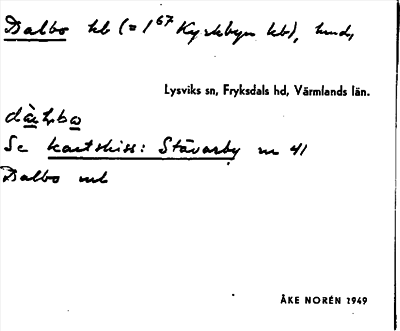 Dalbo hb (= 1⁶⁷ Kyrkbyn hb), hmd,
Lysviks sn, Fryksdals hd, Värmlands län.
Se kartskiss: Stävarby nr 41
Dalbo
ÅKE NORÉN 1949